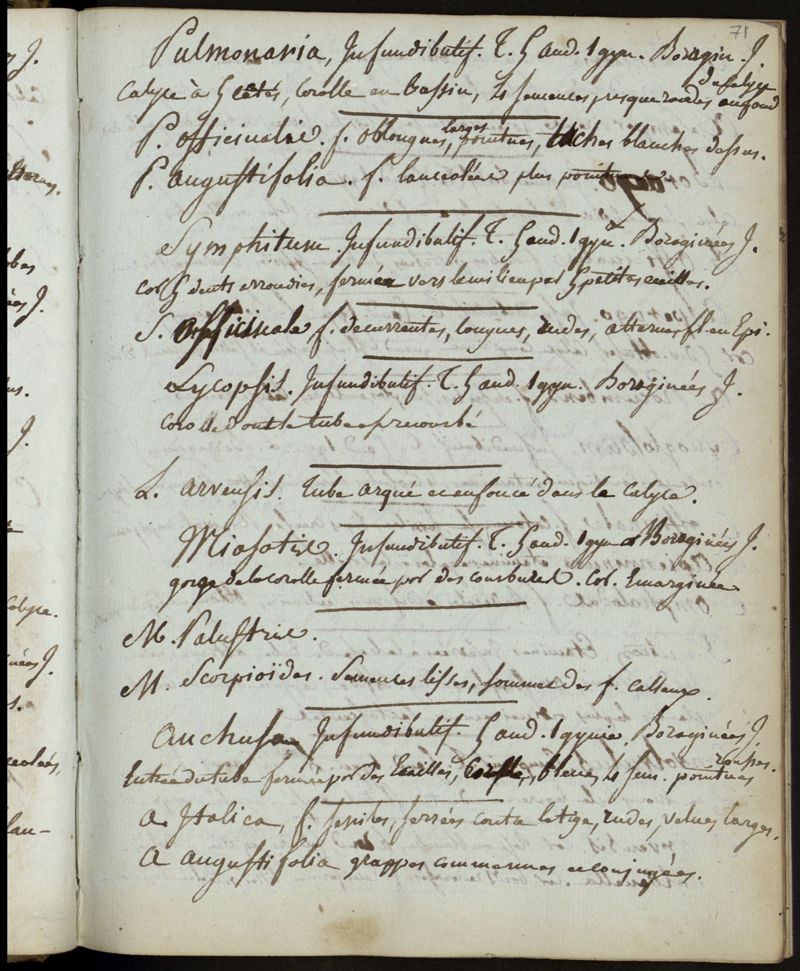 71
Pulmonaria, Infundibulif. T. 5 and. 1 gyn. Boragin. J.
Calyce à 5 côtés, corolle en bassin, 4 semences presque rondes au fond
du calyce
P. officinalis. f. oblongues, larges pointues, taches blanches dessus.
P. angustifolia. f. lanceolées plus pointues
Symphitum Infundibulif. T. 5 and. 1 gyn. Boraginées J.
cor. 5 dents arrondies, fermée vers le milieu par 5 petites ecailles.
S. Officinale f. decurrentes, longues, rudes, alternes fl. en Epi.
Lycopsis. Infundibulif. T. 5 and. 1 gyn. Boraginées J.
corolle dont le tube est recourbé
L. arvensis. tube arqué et enfoncé dans le calyce.
Miosotis. Infundibulif. T. 5 and. 1 gyn Boraginées J.
gorge de la corolle fermée par des courbures. Col. Emarginée
M. Palustris.
M. Scorpioïdes. Semences lisses, sommet des f. calleux.
Anchusa Infundibulif. 5 and. 1 gynie. Boraginées J.
Entrée du tube fermée par des Ecailles, bleue, 4 sem. pointues
A. Italica, f. sessiles, serrées contre la tige, rudes, velues larges.
A angustifolia grappes communes et conjuguées.